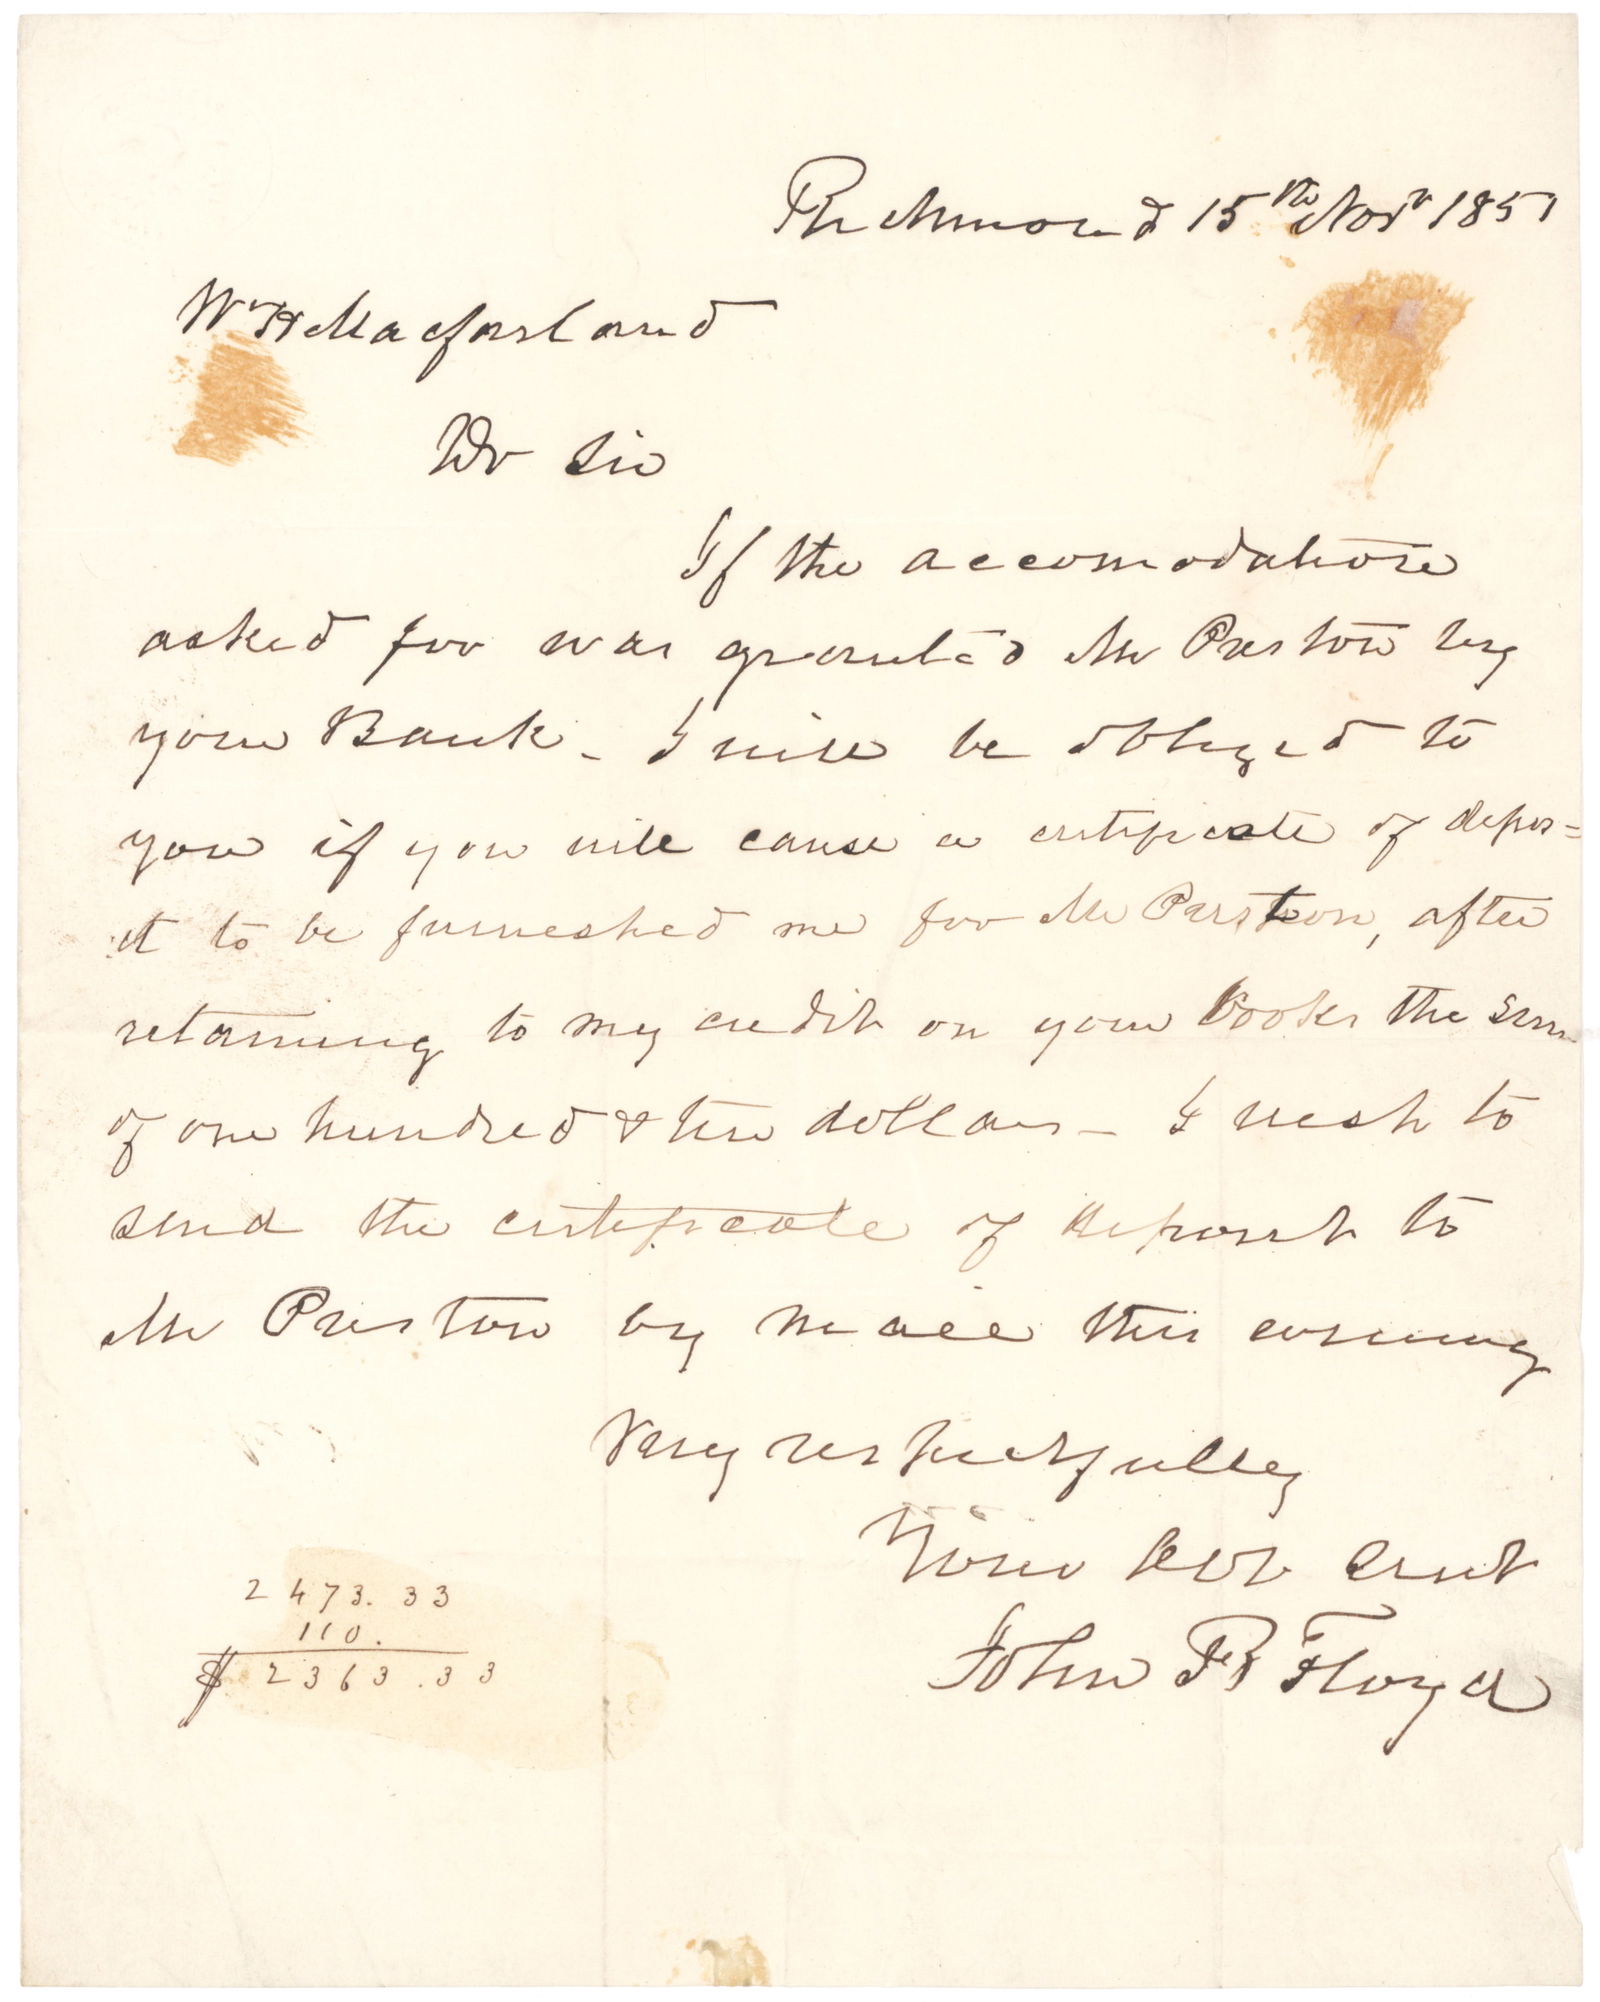 Richmond 15th Novr 1851
Wm H Macfarland
Dr Sir
If the accomodation
asked for was granted Mr Preston by
your Bank - I will be obliged to
you if you will cause a certificate of depos=
it to be furnished me for Mr Preston, after
retaining to my credit on your books the sum
of one hundred & ten dollars - I wish to
send the certificate of deposit to
Mr Preston by mail this evening
Very respectfully
Your obt Servt
John B Floyd
2473.33
110.
$ 2363.33